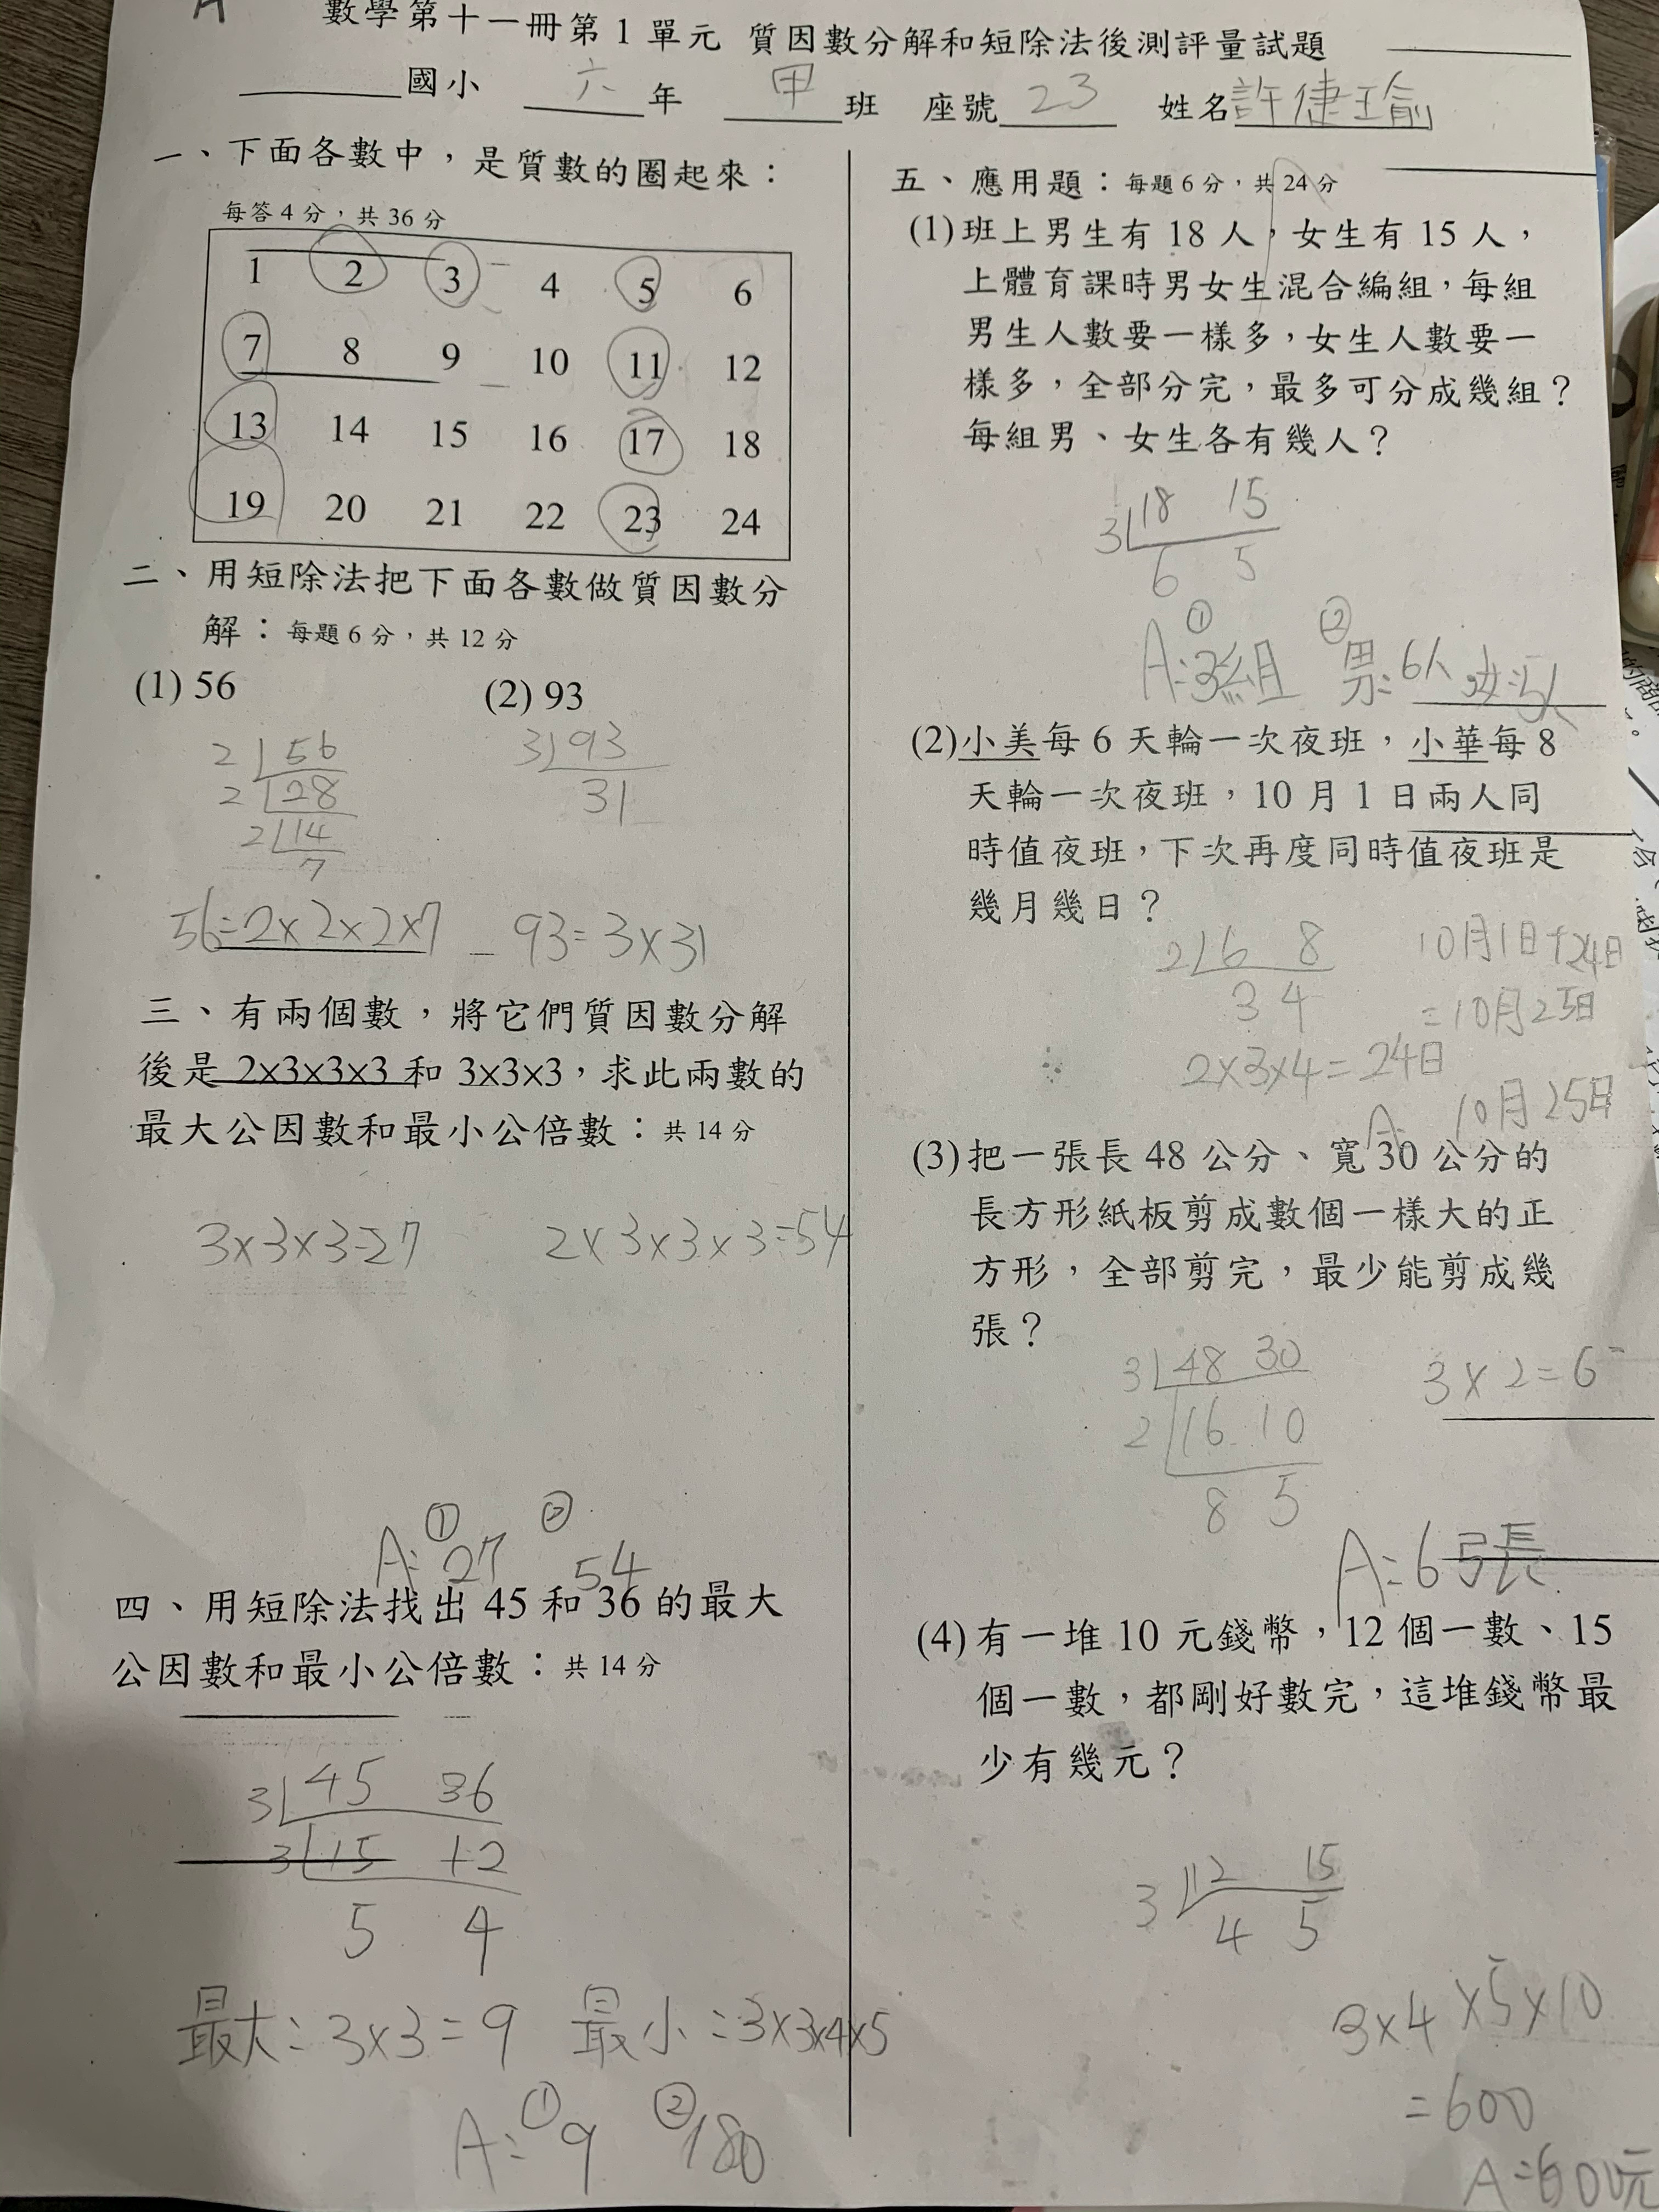 數學第十一冊第1單元 質因數分解和短除法後測評量試題
國小 六年 甲班 座號23 姓名許倢瑜
一、下面各數中，是質數的圈起來：
每答4分，共36分
1 2 3 4 5 6
7 8 9 10 11 12
13 14 15 16 17 18
19 20 21 22 23 24
二、用短除法把下面各數做質因數分
解：每題6分，共12分
(1) 56 (2) 93
2 56
2 28
2 14
7
3 93
31
56=2×2×2×7 93=3×31
三、有兩個數，將它們質因數分解
後是 2×3×3×3 和 3×3×3，求此兩數的
最大公因數和最小公倍數：共14分
3×3×3=27 2×3×3×3=54
A:①27 ②54
四、用短除法找出45和36的最大
公因數和最小公倍數：共14分
3 45 36
3 15 12
5 4
最大:3×3=9 最小:3×3×4×5
A:①9 ②180
五、應用題：每題6分，共24分
(1)班上男生有18人，女生有15人，
上體育課時男女生混合編組，每組
男生人數要一樣多，女生人數要一
樣多，全部分完，最多可分成幾組？
每組男、女生各有幾人？
3 18 15
6 5
A:①3組 ②男:6人,女:5人
(2)小美每6天輪一次夜班，小華每8
天輪一次夜班，10月1日兩人同
時值夜班，下次再度同時值夜班是
幾月幾日？
2 6 8
3 4
2×3×4=24日
10月1日+24日
=10月25日
A: 10月25日
(3)把一張長48公分、寬30公分的
長方形紙板剪成數個一樣大的正
方形，全部剪完，最少能剪成幾
張？
3 48 30
2 16 10
8 5
3×2=6
A:6張
(4)有一堆10元錢幣，12個一數、15
個一數，都剛好數完，這堆錢幣最
少有幾元？
3 12 15
4 5
3×4×5×10
=600
A:600元